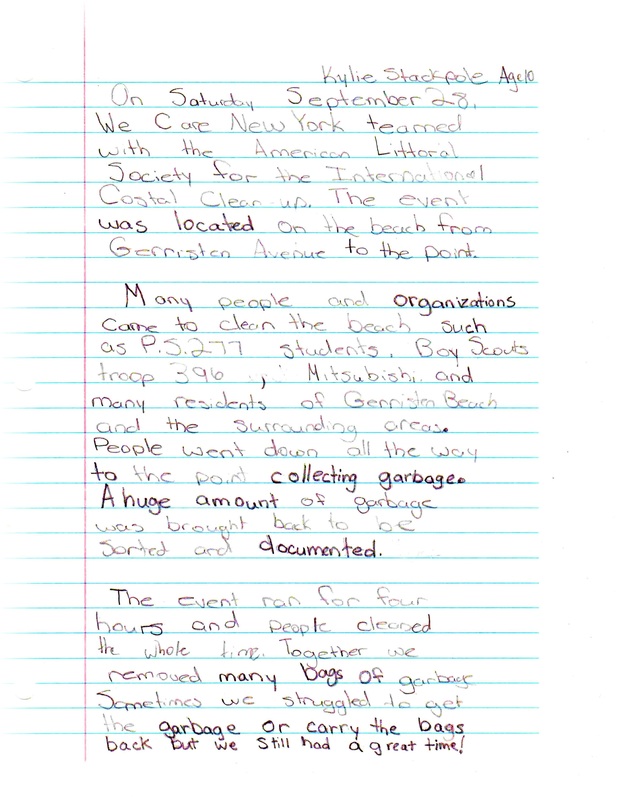 Kylie Stackpole Age 10
On Saturday September 28,
We Care New York teamed
with the American Littoral
Society for the International
Costal Clean up. The event
was located on the beach from
Gerristen Avenue to the point.
Many people and organizations
came to clean the beach such
as P.S.277 students, Boy Scouts
troop 396 , Mitsubishi, and
many residents of Gerristen Beach
and the surrounding areas.
People went down all the way
to the point collecting garbage.
A huge amount of garbage
was brought back to be
sorted and documented.
The event ran for four
hours and people cleaned
the whole time. Together we
removed many bags of garbage
Sometimes we struggled to get
the garbage or carry the bags
back but we still had a great time!